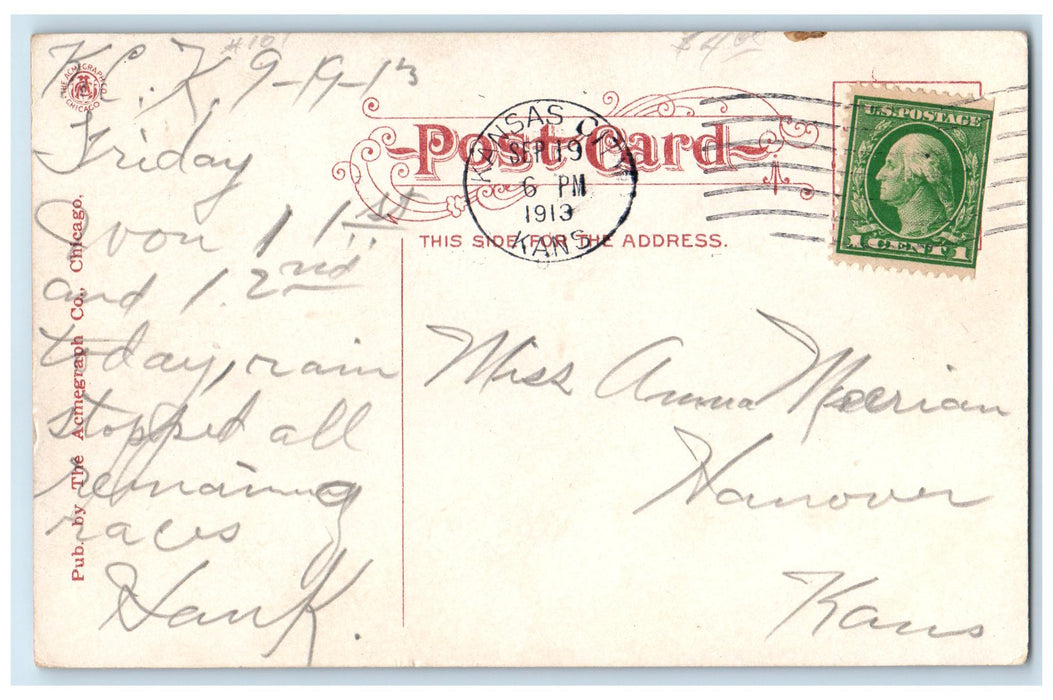 K.C. K. 9-19-13
#101
$4.00
THE ACMEGRAPH CO.
CHICAGO
Friday
I won 1 1st
and 1. 2nd
today, rain
stopped all
remaining
races
Hank.
Pub. by The Acmegraph Co., Chicago.
Post Card
THIS SIDE FOR THE ADDRESS.
KANSAS CITY
SEP 19
6 PM
1913
KANS
U.S. POSTAGE
1 CENT 1
Miss Anna Meerian
Hanover
Kans